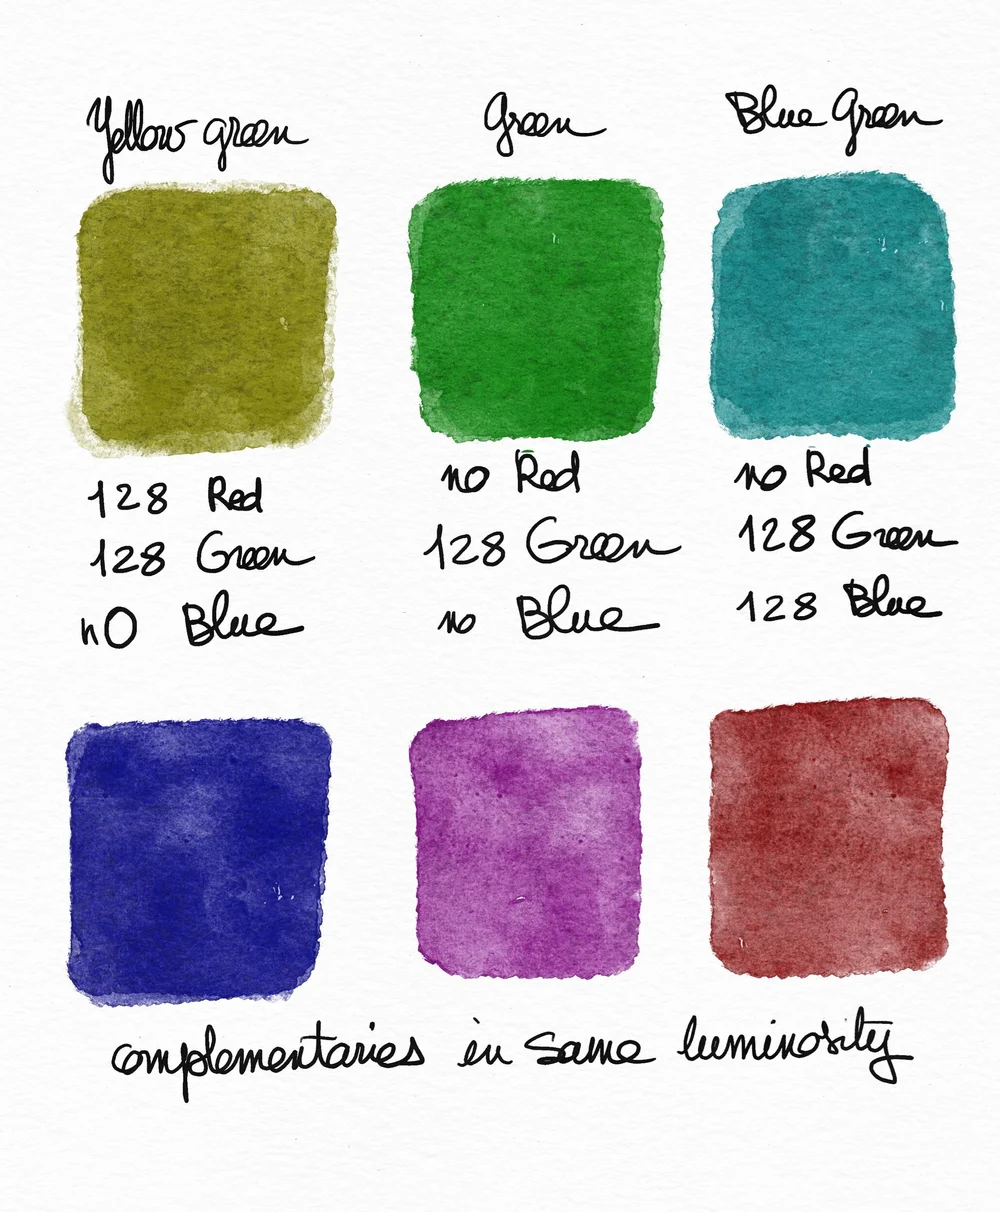 Yellow green
Green
Blue Green
128 Red
128 Green
nO Blue
no Red
128 Green
no Blue
no Red
128 Green
128 Blue
complementaries in same luminosity